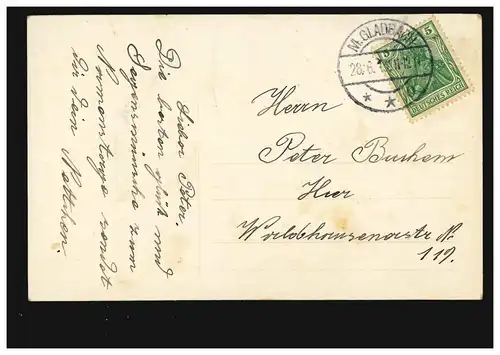 Lieber Peter.
Die besten Glück und
Segenswünsche zum
Namenstage sendet
dir dein Mattchen.
M. GLADBACH
28.6.
5
DEUTSCHES REICH
Herrn
Peter Buchem
Hier
Waldhausenerstr. No.
119.